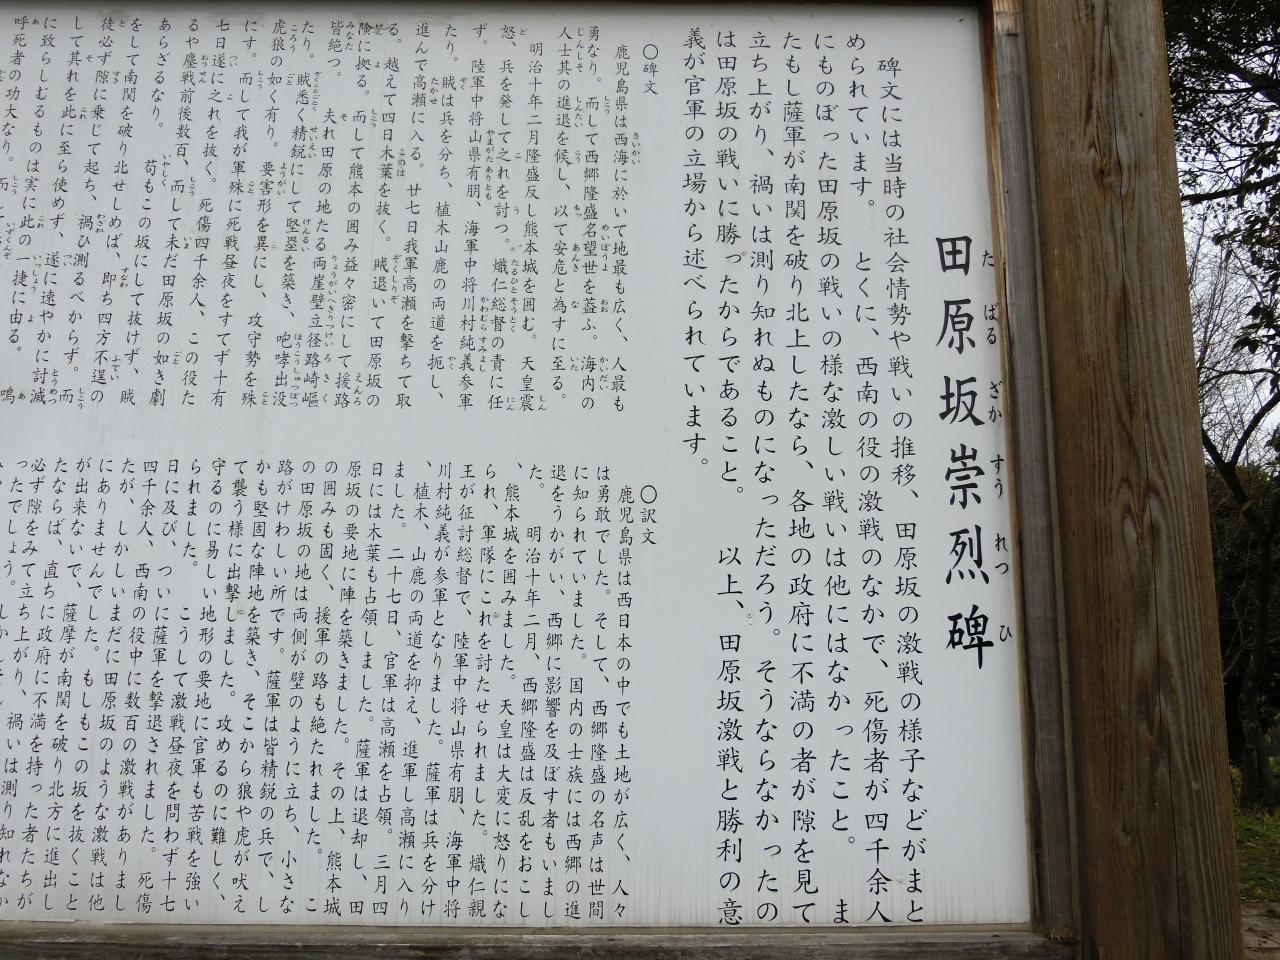 田原坂崇烈碑
た ばる ざか すう れつ ひ
碑文には当時の社会情勢や戦いの推移、田原坂の激戦の様子などがまと
められています。 とくに、西南の役の激戦のなかで、死傷者が四千余人
にものぼった田原坂の戦いの様な激しい戦いは他にはなかったこと。 ま
たもし薩軍が南関を破り北上したなら、各地の政府に不満の者が隙を見て
立ち上がり、禍いは測り知れぬものになっただろう。そうならなかったの
は田原坂の戦いに勝ったからであること。 以上、田原坂激戦と勝利の意
義が官軍の立場から述べられています。
〇碑文
鹿児島県は西海に於いて地最も広く、人最も
勇なり。而して西郷隆盛名望世を蓋ふ。海内の
人士其の進退を候し、以て安危と為すに至る。
明治十年二月隆盛反し熊本城を囲む。天皇震
怒、兵を発して之れを討つ。熾仁総督の責に任
ず。陸軍中将山県有朋、海軍中将川村純義参軍
たり。賊は兵を分ち、植木山鹿の両道を扼し、
進んで高瀬に入る。廿七日我軍高瀬を撃ちて取
る。越えて四日木葉を抜く。賊退いて田原坂の
険に拠る。而して熊本の囲み益々密にして援路
皆絶つ。 夫れ田原の地たる両崖壁立径路崎嶇
たり。賊悉く精鋭にして堅塁を築き、咆哮出没
虎狼の如く有り。要害形を異にし、攻守勢を殊
にす。而して我が軍殊に死戦昼夜をすてず十有
七日遂に之れを抜く。死傷四千余人、この役た
るや鏖戦前後数百、而して未だ田原坂の如き劇
あらざるなり。 苟もこの坂にして抜けず、賊
をして南関を破り北せしめば、即ち四方不逞の
徒必ず隙に乗じて起ち、禍ひ測るべからず。而
して其れを此に至ら使めず、遂に速やかに討滅
に致らしむるものは実に此の一捷に由る。 嗚
呼死者の功大なり。
〇訳文
鹿児島県は西日本の中でも土地が広く、人々
は勇敢でした。そして、西郷隆盛の名声は世間
に知られていました。国内の士族には西郷の進
退をうかがい、西郷に影響を及ぼす者もいまし
た。 明治十年二月、西郷隆盛は反乱をおこし
、熊本城を囲みました。天皇は大変に怒りにな
られ、軍隊にこれを討たせられました。熾仁親
王が征討総督で、陸軍中将山県有朋、海軍中将
川村純義が参軍となりました。薩軍は兵を分け
、植木、山鹿の両道を抑え、進軍し高瀬に入り
ました。二十七日、官軍は高瀬を占領。三月四
日には木葉も占領しました。薩軍は退却し、田
原坂の要地に陣を築きました。その上、熊本城
の囲みも固く、援軍の路も絶たれました。 こ
の田原坂の地は両側が壁のように立ち、小さな
路がけわしい所です。薩軍は皆精鋭の兵で、し
かも堅固な陣地を築き、そこから狼や虎が吠え
て襲う様に出撃しました。攻めるのに難しく、
守るのに易しい地形の要地に官軍も苦戦を強い
られました。 こうして激戦昼夜を問わず十七
日に及び、ついに薩軍を撃退されました。死傷
四千余人、西南の役中に数百の激戦がありまし
たが、しかしいまだに田原坂のような激戦は他
にありませんでした。もしもこの坂を抜くこと
が出来ないで、薩摩が南関を破り北方に進出し
たならば、直ちに政府に不満を持った者たちが
必ず隙をみて立ち上がり、禍いは測り知れなか
ったでしょう。